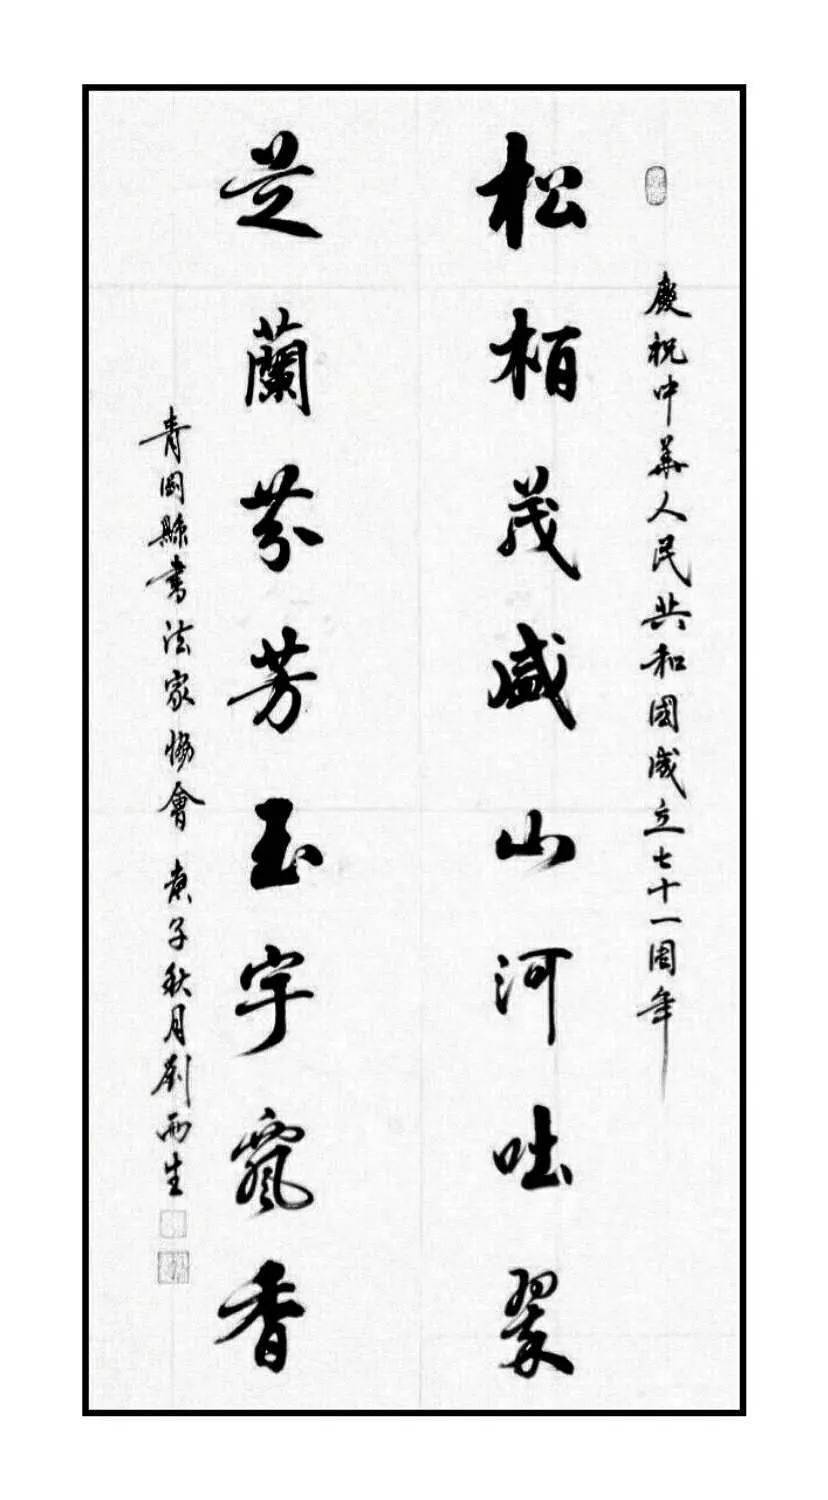 慶祝中華人民共和國成立七十一周年
松柏茂盛山河吐翠
芝蘭芬芳玉宇飄香
青岡縣書法家協會 庚子秋月劉雨生